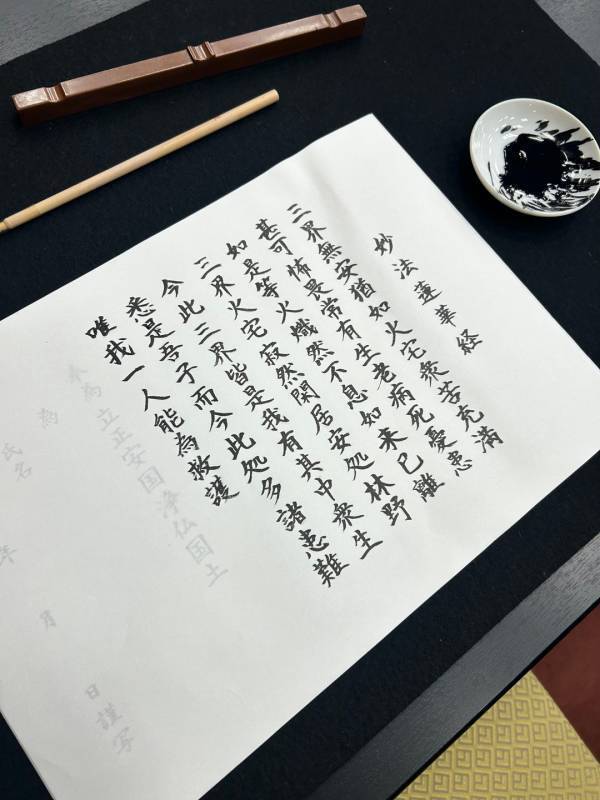 妙法蓮華経
三界無安猶如火宅衆苦充満
甚可怖畏常有生老病死憂患
如是等火熾然不息如来已離
三界火宅寂然閑居安処林野
今此三界皆是我有其中衆生
悉是吾子而今此処多諸患難
唯我一人能為救護
奉為立正安国浄仏国土
為
氏名
年 月 日謹写